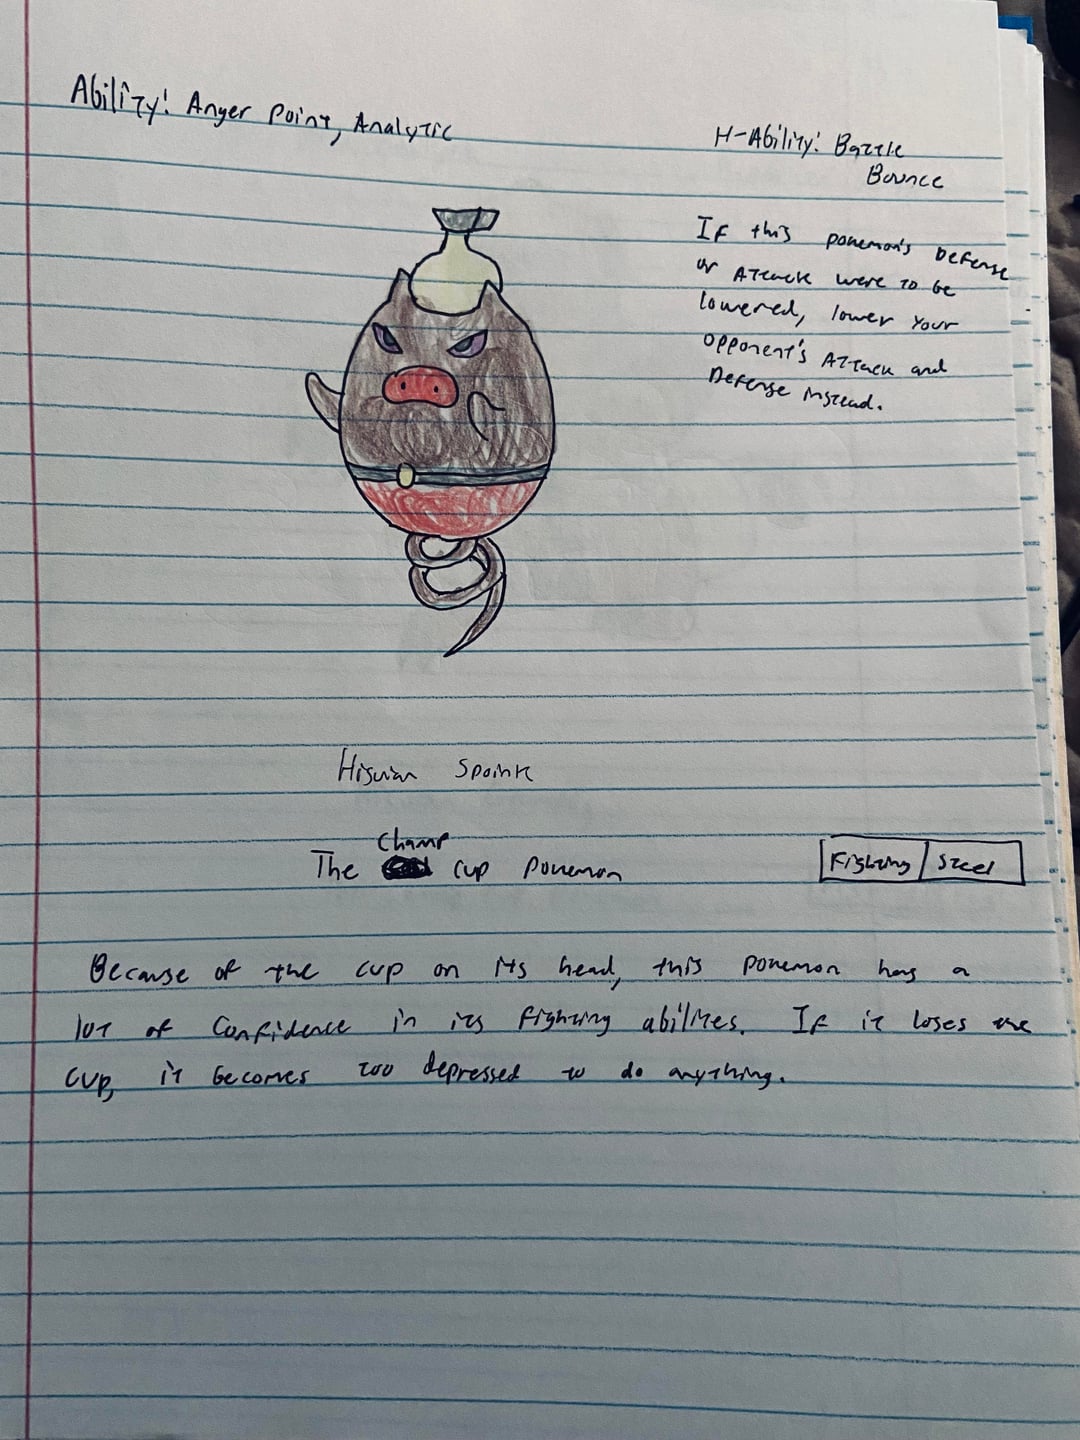 Ability: Anger Point, Analytic
H-Ability: Battle
Bounce
If this pokemon's Defense
or Attack were to be
lowered, lower your
opponent's Attack and
Defense instead.
Hisuian Spoink
Champ
The cup pokemon
Fighting Steel
Because of the cup on its head, this pokemon has a
lot of confidence in its fighting abilites. If it loses the
cup, it becomes too depressed to do anything.